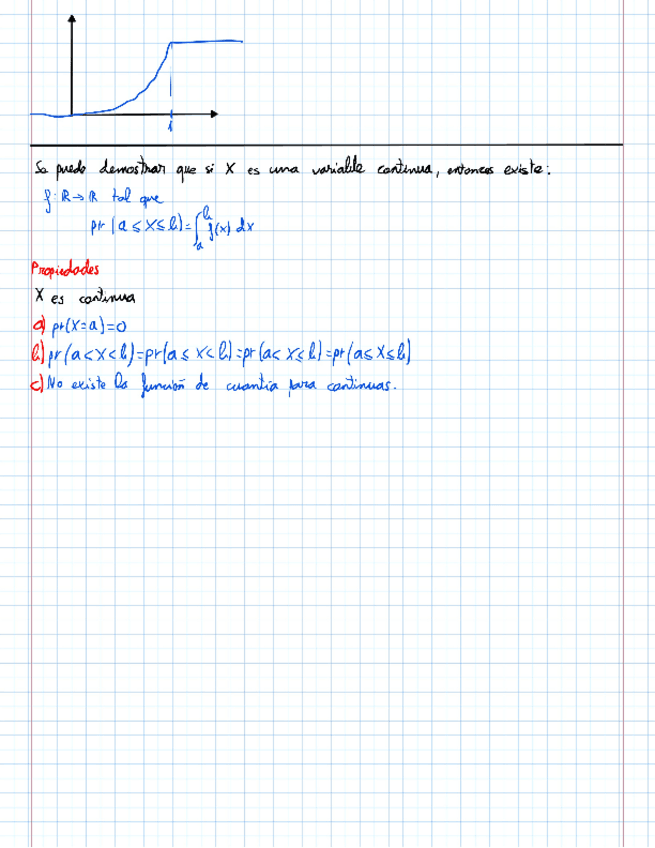 1
Se puede demostrar que si X es una variable continua, entonces existe:
f: R→R tal que
pr(a ≤ X ≤ b) = ∫_a^b f(x) dx
Propiedades
X es continua
a) pr(X=a)=0
b) pr(a<X<b)=pr(a≤X<b)=pr(a<X≤b)=pr(a≤X≤b)
c) No existe la función de cuantía para continuas.